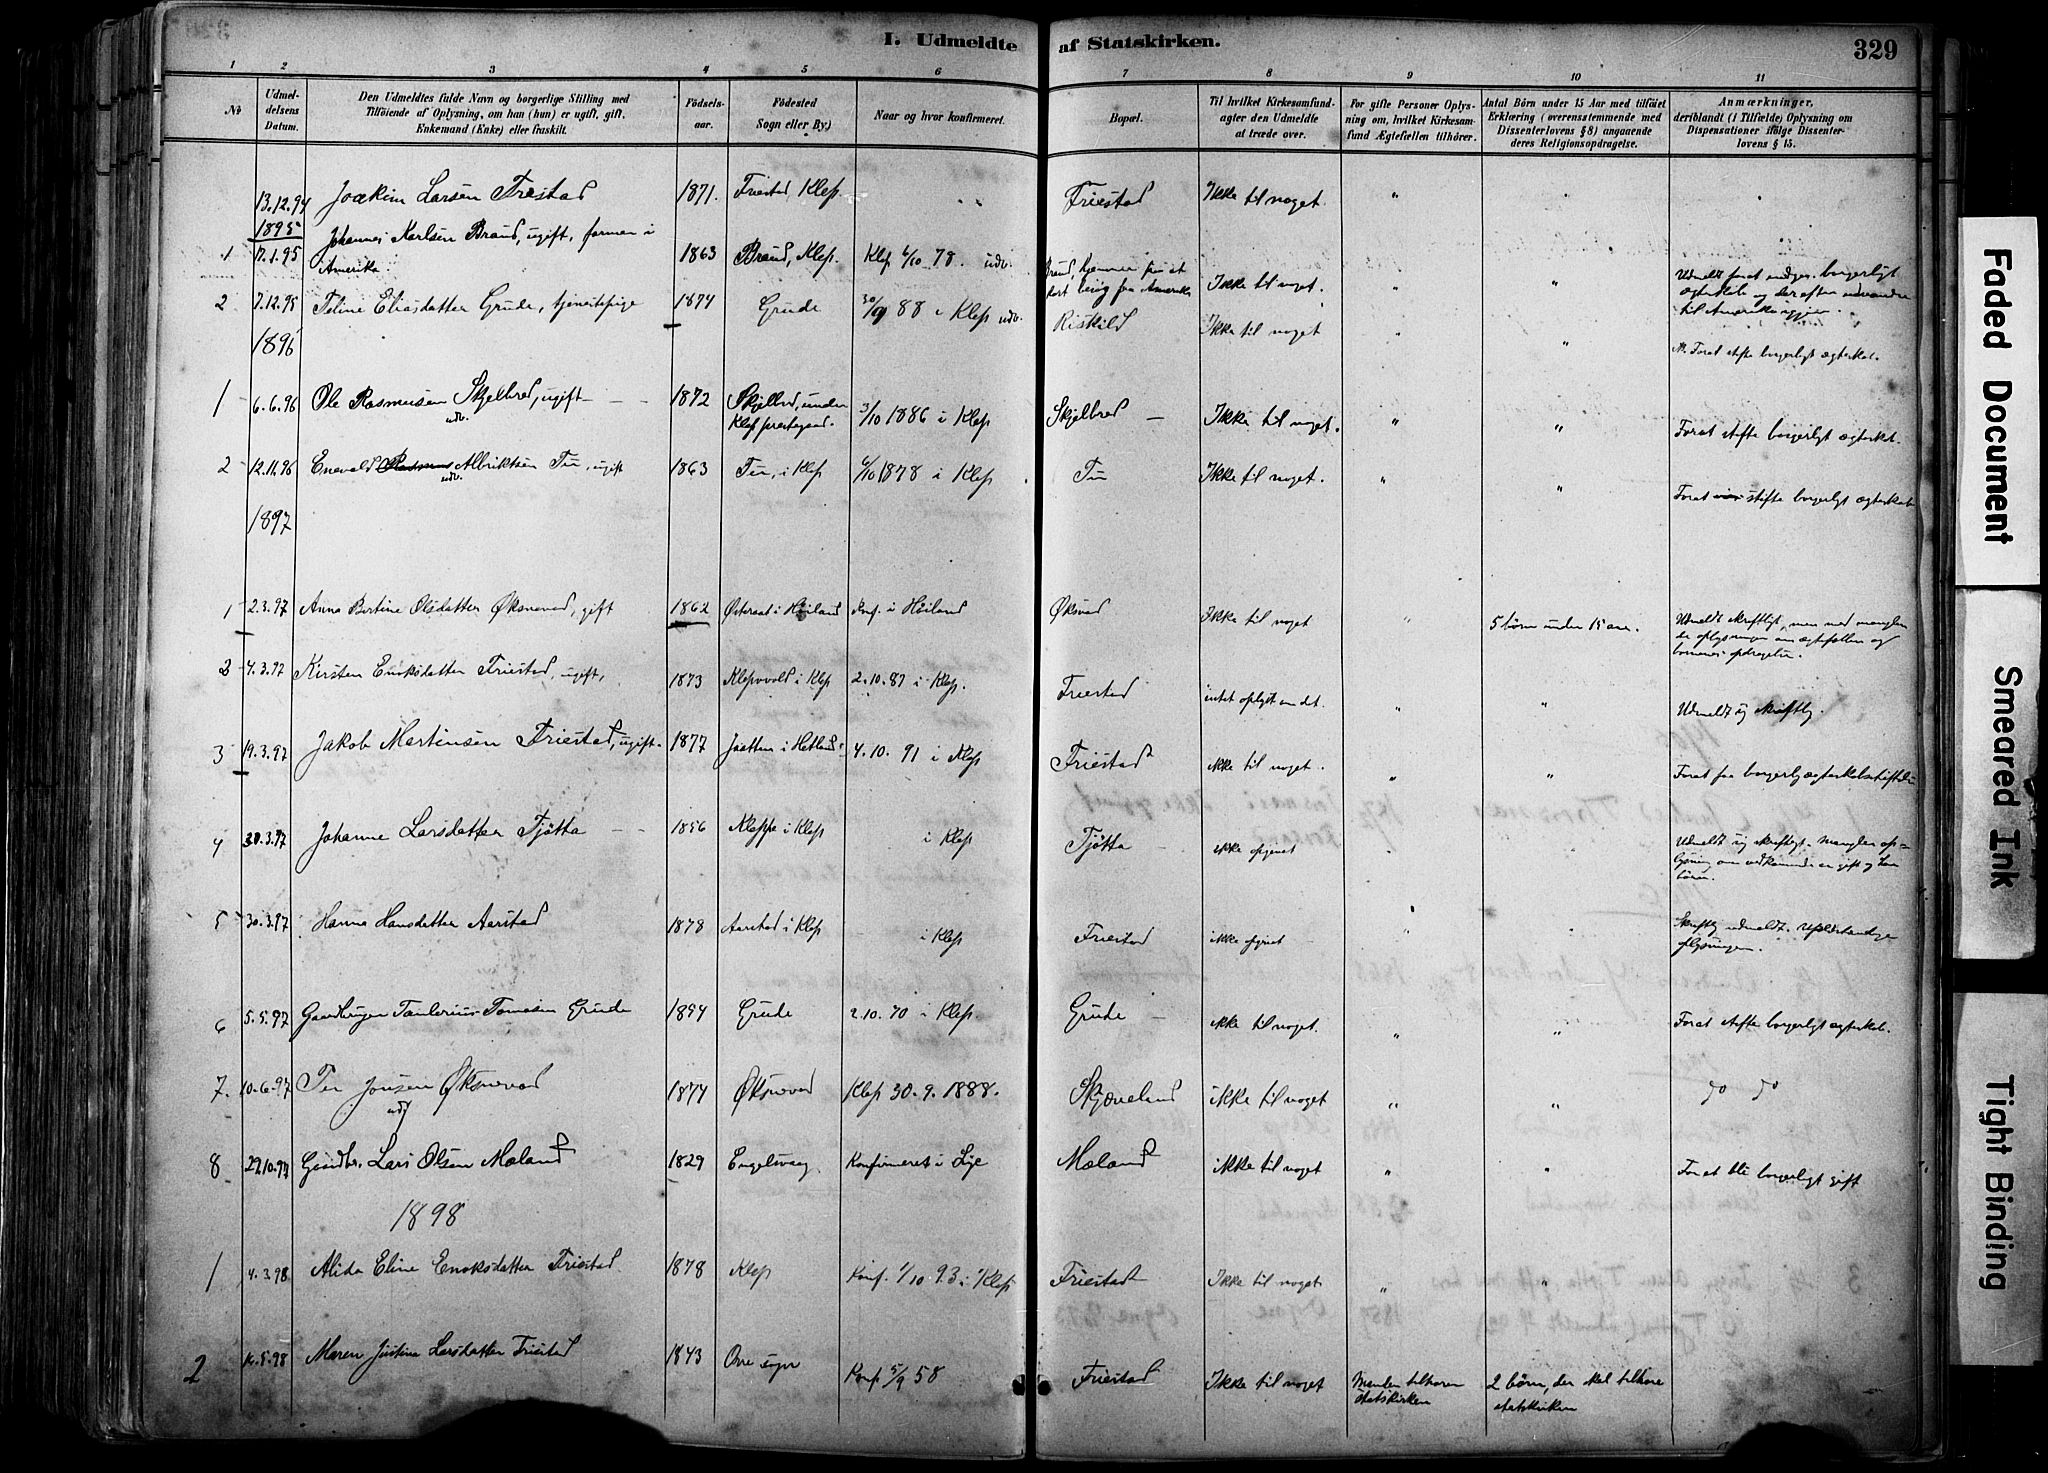 I. Udmeldte af Statskirken. 329
1 2 3 4 5 6 7 8 9 10 11
No
Udmeldelsens Datum.
Den Udmeldtes fulde Navn og borgerlige Stilling med
Tilføiende af Oplysning, om han (hun) er ugift, gift,
Enkemand (Enke) eller fraskilt.
Fødselsaar.
Fødested
Sogn eller By)
Naar og hvor konfirmeret.
Bopæl.
Til hvilket Kirkesamfund
agter den Udmeldte
at træde over.
For gifte Personer Oplysning om, hvilket Kirkesamfund Ægtefællen tilhører.
Antal Børn under 15 Aar med tilføiet
Erklæring (overensstemmende med
Dissenterlovens § 8) angaaende
deres Religionsopdragelse.
Anmærkninger,
deriblandt (i Tilfælde) Oplysning om
Dispensationer ifølge Dissenterlovens § 15.
13.12.94 Joakim Larsen Friestad 1871. Friestad, Klep. Friestad Ikke til noget. " " "
1895
1 17.1.95 Johannes Karlsen Braud, ugift, farmer i Amerika. 1863 Braud, Klep. Klep 6/10 78. udv. Ikke til noget. "
2 7.12.95 Eliasdatter Grude, tjenestepige 1874 Grude 30/9 88 i Klep udv. Riskild Ikke til noget " " Forat stifte borgerligt ægteskab.
1896
1 6.6.96 Ole Rasmusen Skjelbred, ugift udv. 1872 Skjelbred, under Klep prestegaard. 3/10 1886 i Klep Skjelbred Ikke til noget. " " Forat stifte borgerligt ægteskab.
2 12.11.96 Enevald Albriktsen Tu, ugift udv. 1863 Tu, i Klep 6/10 1878 i Klep Tu Ikke til noget. " " Forat stifte borgerligt ægteskab
1897
1 2.3.97 Anna Bertine Olsdatter Øksnevad, gift 1862 Østeraat i Høiland Konf. i Høiland Øksnevad Ikke til noget " 5 børn under 15 aar. Udmeldt skriftligt, men med manglende oplysninger om ægtefællen og børnenes opdragelse.
2 4.3.97 Kirsten Enoksdatter Friestad, ugift, 1873 Klepvold i Klep 2.10.87 i Klep. Friestad intet oplyst om det. " " Udmeldt sig skriftlig.
3 19.3.97 Jakob Martinsen Friestad, ugift. 1877 Jaatten i Hetland 4.10.91 i Klep Friestad ikke til noget. " "
4 30.3.97 Johanne Larsdatter Tjøtta 1856 Kleppe i Klep i Klep Tjøtta ikke opgivet Udmeldt sig skriftligt. Mangler oplysning om vedkommende er gift og har børn.
5 30.3.97 Hanna Hansdatter Aarstad 1878 Aarstad i Klep i Klep Friestad ikke opgivet " Skriftlig udmeldt. Ufuldstændige oplysninger.
6 5.5.97 Tønnesen Grude 1894 Grude 2.10.70 i Klep. Grude ikke til noget. " " Forat stifte borgerligt ægteskab.
7. 10.6.97 Jonsen Øksnevad udf 1874 Øksnevad Klep 30.9.1888. Skjæveland ikke til noget " "
8 29.10.97 Gaardbr. Lars Olsen Maland 1829 Engelsvaag. Konfirmeret i Lye Maland ikke til noget " " For at bli borgerligt gift
1898
1 4.3.98 Alida Eline Enoksdatter Friestad. 1878 Klep Konf. 1/10 93 i Klep Friestad Ikke til noget " "
2 16.5.98 Maren Justine Larsdatter Friestad 1843 Ore sogn Konf 5/9 58 Friestad Ikke til noget Manden tilhører statskirken 2 børn, der skal tilhøre statskirken
Faded Document
Smeared Ink
Tight Binding